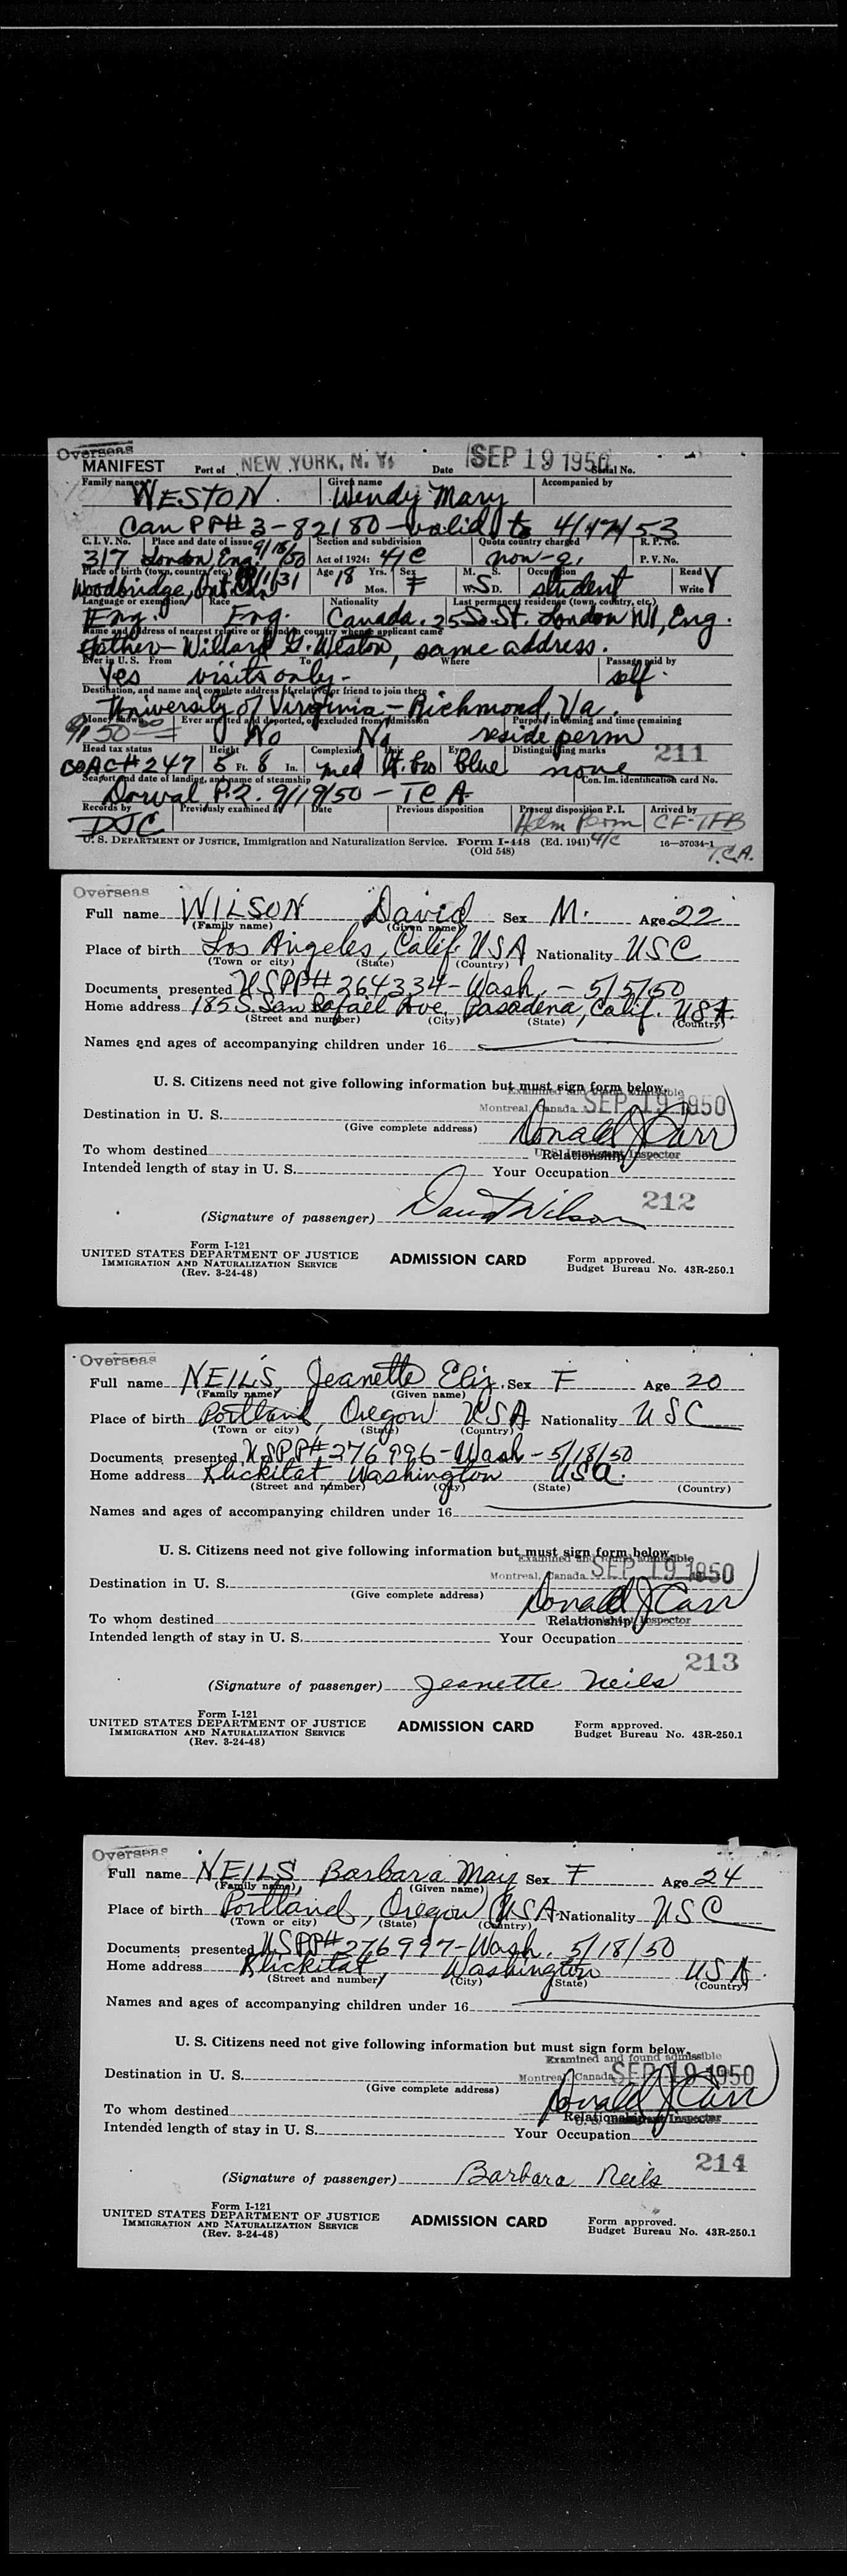 Overseas
MANIFEST Port of NEW YORK, N. Y. Date SEP 19 1950 Serial No.
Family name Given name Accompanied by
WESTON Wendy Mary
Can PP# 3-82180 - valid to 4/17/53
C. I. V. No. Place and date of issue Section and subdivision Quota country charged R. P. No.
317 London Eng 9/18/50 Act of 1924: 4/C non-q. P. V. No.
Place of birth (town, country, etc.) Age 18 Yrs. Sex M. S. Occupation Read Y
Woodbridge, Ont. Mos. F W. S D. student Write
Language or exemption Race Nationality Last permanent residence (town, country, etc.)
Eng. Eng. Canada. 25 So. St. London W1, Eng.
Name and address of nearest relative or friend in country whence applicant came
Father - Willard G. Weston, same address.
Ever in U. S. From To Where Passage paid by
Yes visits only - self.
Destination, and name and complete address of relative or friend to join there
University of Virginia - Richmond, Va.
Money shown Ever arrested and deported, or excluded from admission Purpose in coming and time remaining
50 No No reside perm
Head tax status Height Complexion Hair Eyes Distinguishing marks 211
BOAC# 247 5 Ft. 6 In. med lt. bro Blue none Con. Im. identification card No.
Seaport and date of landing, and name of steamship
Dorval, P.Q. 9/19/50 - TCA
Records by Previously examined at Date Previous disposition Present disposition P. I. Arrived by
DJC Adm Perm 4/C CF-TFB
U. S. DEPARTMENT OF JUSTICE, Immigration and Naturalization Service. Form I-448 (Ed. 1941) 16—57034-1
(Old 548) T.C.A.
Overseas
Full name WILSON David Sex M. Age 22
(Family name) (Given name)
Place of birth Los Angeles, Calif. USA Nationality USC
(Town or city) (State) (Country)
Documents presented USPP# 264334 - Wash. - 5/5/50
Home address 185 S. San Rafael Ave. Pasadena, Calif. USA.
(Street and number) (City) (State) (Country)
Names and ages of accompanying children under 16
U. S. Citizens need not give following information but must sign form below.
Examined and found admissible
Montreal, Canada SEP 19 1950
Destination in U. S.
(Give complete address) Donald J Carr
To whom destined Relationship
U. S. Immigrant Inspector
Intended length of stay in U. S. Your Occupation
212
(Signature of passenger) David Wilson
Form I-121
UNITED STATES DEPARTMENT OF JUSTICE ADMISSION CARD Form approved.
IMMIGRATION AND NATURALIZATION SERVICE Budget Bureau No. 43R-250.1
(Rev. 3-24-48)
Overseas
Full name NEILS, Jeanette Eliz. Sex F Age 20
(Family name) (Given name)
Place of birth Portland, Oregon USA Nationality USC
(Town or city) (State) (Country)
Documents presented USPP# 276996 - Wash - 5/18/50
Home address Klickitat Washington USA.
(Street and number) (City) (State) (Country)
Names and ages of accompanying children under 16
U. S. Citizens need not give following information but must sign form below.
Examined and found admissible
Montreal, Canada SEP 19 1950
Destination in U. S.
(Give complete address) Donald J Carr
To whom destined Relationship
Inspector
Intended length of stay in U. S. Your Occupation
213
(Signature of passenger) Jeanette Neils
Form I-121
UNITED STATES DEPARTMENT OF JUSTICE ADMISSION CARD Form approved.
IMMIGRATION AND NATURALIZATION SERVICE Budget Bureau No. 43R-250.1
(Rev. 3-24-48)
Overseas
Full name NEILS, Barbara May Sex F Age 24
(Family name) (Given name)
Place of birth Portland, Oregon USA Nationality USC
(Town or city) (State) (Country)
Documents presented USPP# 276997 - Wash. 5/18/50
Home address Klickitat, Washington USA.
(Street and number) (City) (State) (Country)
Names and ages of accompanying children under 16
U. S. Citizens need not give following information but must sign form below.
Examined and found admissible
Montreal, Canada SEP 19 1950
Destination in U. S.
(Give complete address) Donald J Carr
To whom destined Relationship
U. S. Immigrant Inspector
Intended length of stay in U. S. Your Occupation
214
(Signature of passenger) Barbara Neils
Form I-121
UNITED STATES DEPARTMENT OF JUSTICE ADMISSION CARD Form approved.
IMMIGRATION AND NATURALIZATION SERVICE Budget Bureau No. 43R-250.1
(Rev. 3-24-48)